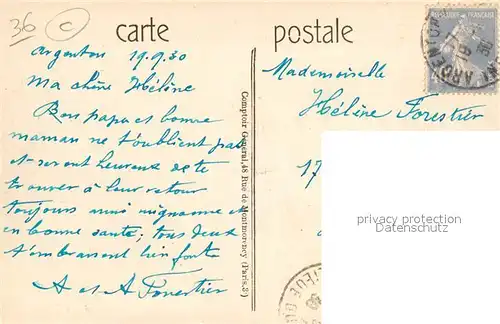 36 C
carte postale
Argenton 19.9.30
Ma chère Hélène
Bon papa et bonne
maman ne t'oublient pas
et seront heureux de te
trouver à leur retour
toujours aussi mignonne et
en bonne santé; tous deux
t'embrassent bien fort
A et A Forestier
Comptoir Général, 48 Rue de Montmorency (Paris, 3)
Mademoiselle
Hélène Forestier
17
privacy protection
Datenschutz